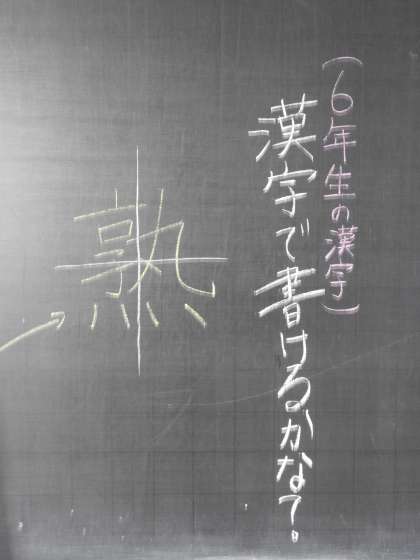 (6年生の漢字)
漢字で書けるかなて。
熟